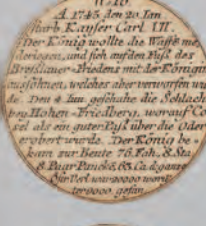 A. 1745 den 20 Jan
starb Kayser Carl VII.
Der König wollte die Waffē nie
derlegen, und sich auf den Fuß des
Breslauer-Friedens mit der Königin
aussöhnen, welches aber verworfen wur
de. Den 4 Jun. geschahe die Schlach
bey Hohen-Friedberg, worauf Co
sel als ein guter Paß über die Oder
erobert wurde. Der König be
kam zur Beute 76. Fah., 8. Sta
8. Paar Paucken, 63. Ca. d. ganze
Östr. Verl. war 20000 worū
ter 9000 gefan